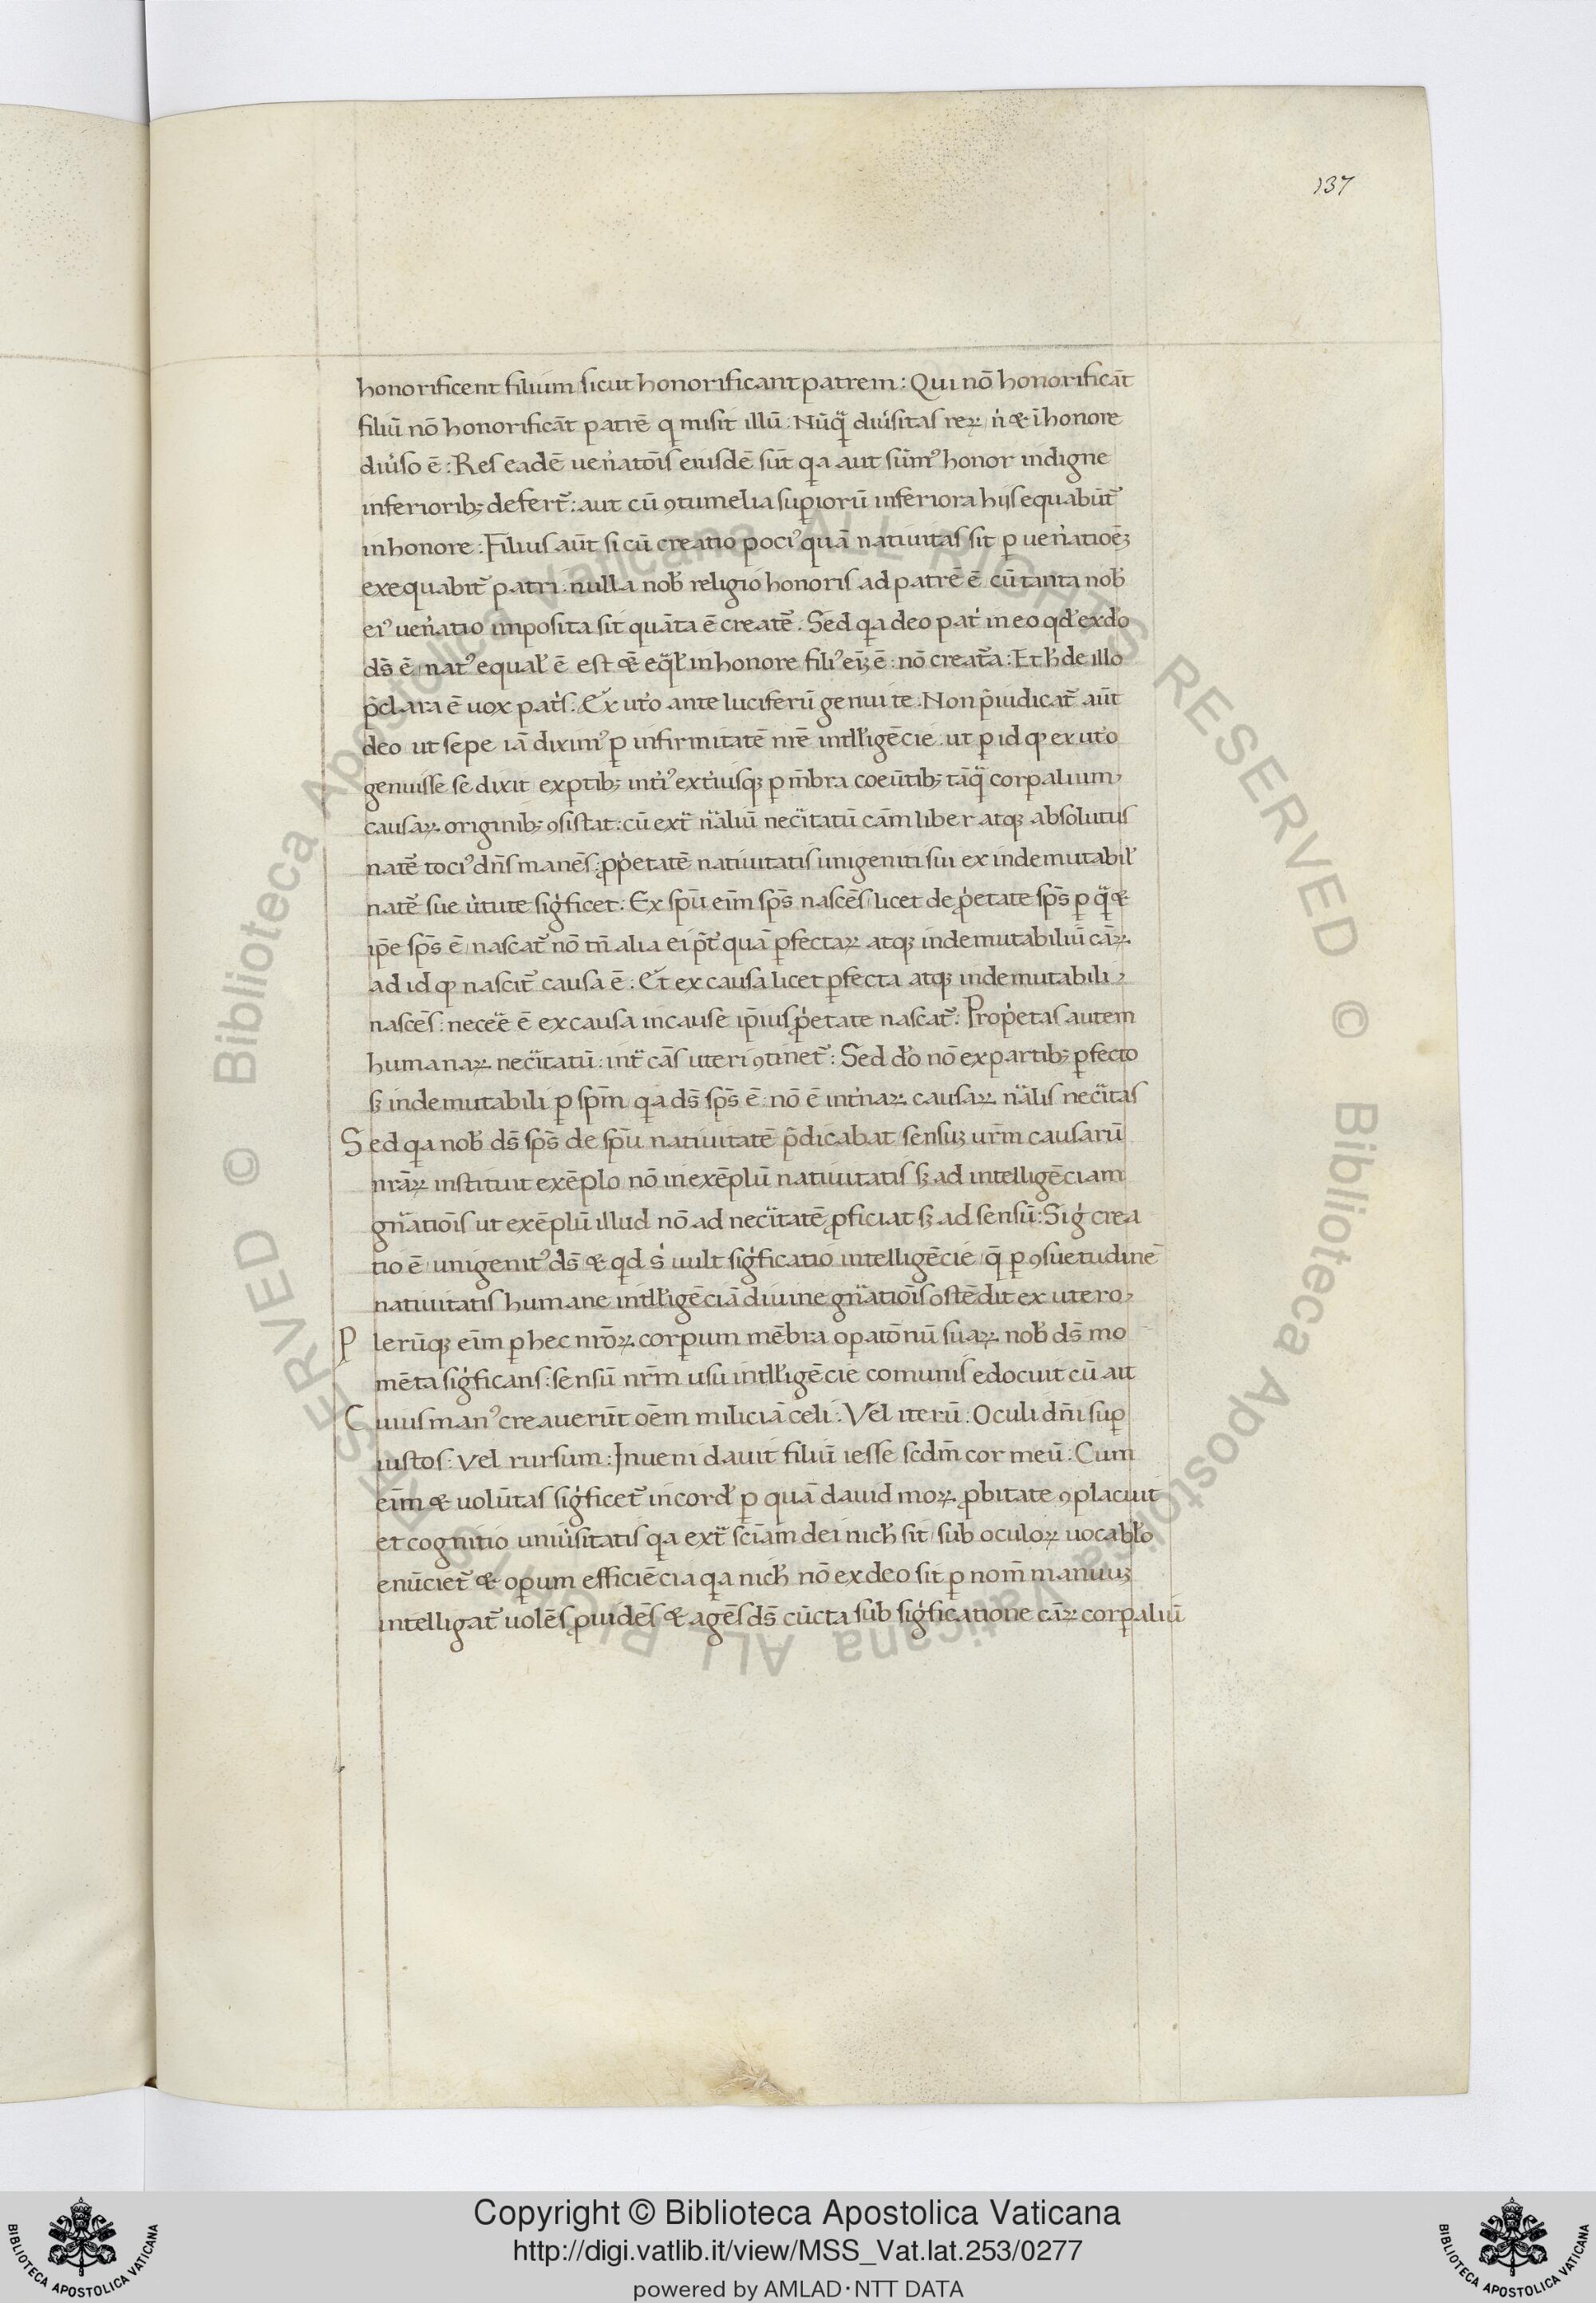 137
honorificent filium sicut honorificant patrem : Qui nō honorificāt
filiū nō honorificāt patrē q misit illū . Nūq̈ diu̇sitas reꝝ n̉ & ī honore
diu̇so ē : Res eadē uen̉atōis eiusdē sūt qa aut sūmꝰ honor indigne
inferioribꝫ defert᷑ : aut cū ꝯtumelia suꝑiorū inferiora hijs equabūt᷑
in honore : Filius aūt si cū creatio pociꝰ quā natiuitas sit ꝑ uen̉atioēꝫ
exequabit᷑ patri . nulla nob̉ religio honoris ad patrē ē cū tanta nob̉
eiꝰ uen̉atio imposita sit quāta ē create᷑ . Sed qa deo pat̉ in eo qd̉ ex do
ds̄ ē natꝰ equal̉ ē est & eq̈l̉ in honore filiꝰ eiꝫ ē . nō creat᷑a : Et h̉ de illo
p̄clara ē uox pat̉s . Ex ut̉o ante luciferū genui te . Non p̄iudicat᷑ aūt
deo ut sepe iā diximꝰ ꝑ infirmitatē nr̄e intll̉igēcie . ut ꝑ id ꝙ ex ut̉o
genuisse se dixit ex ꝑtibꝫ int̉iꝰ ext̉iusqꝫ ꝑ m̄bra coeūtibꝫ tāq̈ corꝑalium
causaꝝ originibꝫ ꝯsistat : cū ext̄ n̈aliū nec̈itatū cām liber atqꝫ absolutus
nate᷑ tociꝰ dn̄s manēs : ꝓp̉etatē natiuitatis unigeniti sui ex indemutabil̉
nate᷑ sue u̇tute sig̉ficet : Ex spū eīm sps̄ nascēs licet de ꝓp̉etate sps̄ ꝑ q̈ &
ip̄e sps̄ ē nascat᷑ nō tn̄ alia ei p̄t᷑ quā ꝑfectaꝝ atqꝫ indemutabiliū cāꝝ
ad id ꝙ nascit᷑ causa ē : Et ex causa licet ꝑfecta atqꝫ indemutabili
nascēs : nece̎e ē ex causa in cause ip̄ius ꝓp̉etate nascat᷑ : Prop̉etas autem
humanaꝝ nec̈itatū : int̄ cās uteri ꝯtinet᷑ : Sed do̓ nō ex partibꝫ ꝑfecto
sꝫ indemutabili ꝑ spm̄ qa ds̄ sps̄ ē nō ē int̉naꝝ causaꝝ n̈alis nec̈itas
Sed qa nob̉ ds̄ sps̄ de spū natiuitatē p̄dicabat sensuꝫ ur̄m causarū
nr̄aꝝ instituit exēplo nō in exēplū natiuitatis sꝫ ad intelligēciam
gn̈atiōis ut exēplū illud nō ad nec̈itatē ꝓficiat sꝫ ad sensū : Sig̉ crea
tio ē unigenitꝰ ds̄ & qd s̉ uult sig̉ficatio intelligēcie q̄ ꝑ ꝯsuetudinē
natiuitatis humane intll̉igēciā diuine gn̈atiōis ostēdit ex utero
Plerūqꝫ eīm ꝑ hec nr̄oꝝ corꝑum mēbra oꝑatōnū suaꝝ nob̉ ds̄ mo
mēta sig̉ficans : sensū nr̄m usu intll̉igēcie comunis edocuit cū ait
Cuius manꝰ creauerūt oēm miliciā celi : Vel iterū : Oculi dn̄i suꝑ
iustos : Vel rursum : Inueni dauit filiū iesse scdm̄ cor meū : Cum
eīm & uolūtas sig̉ficet᷑ in cord̉ ꝑ quā dauid moꝝ ꝓbitate ꝯplacuit
et cognitio uniu̇sitatis qa ext̄ sciām dei nich̉ sit sub oculoꝝ uocabl̉o
enūciet᷑ & oꝑum efficiēcia qa nich̉ nō ex deo sit ꝑ nom̄ manuuꝫ
intelligat᷑ uolēs ꝓuidēs & agēs ds̄ cūcta sub sig̉ficatione cāꝝ corꝑaliū
Copyright © Biblioteca Apostolica Vaticana
http://digi.vatlib.it/view/MSS_Vat.lat.253/0277
powered by AMLAD·NTT DATA